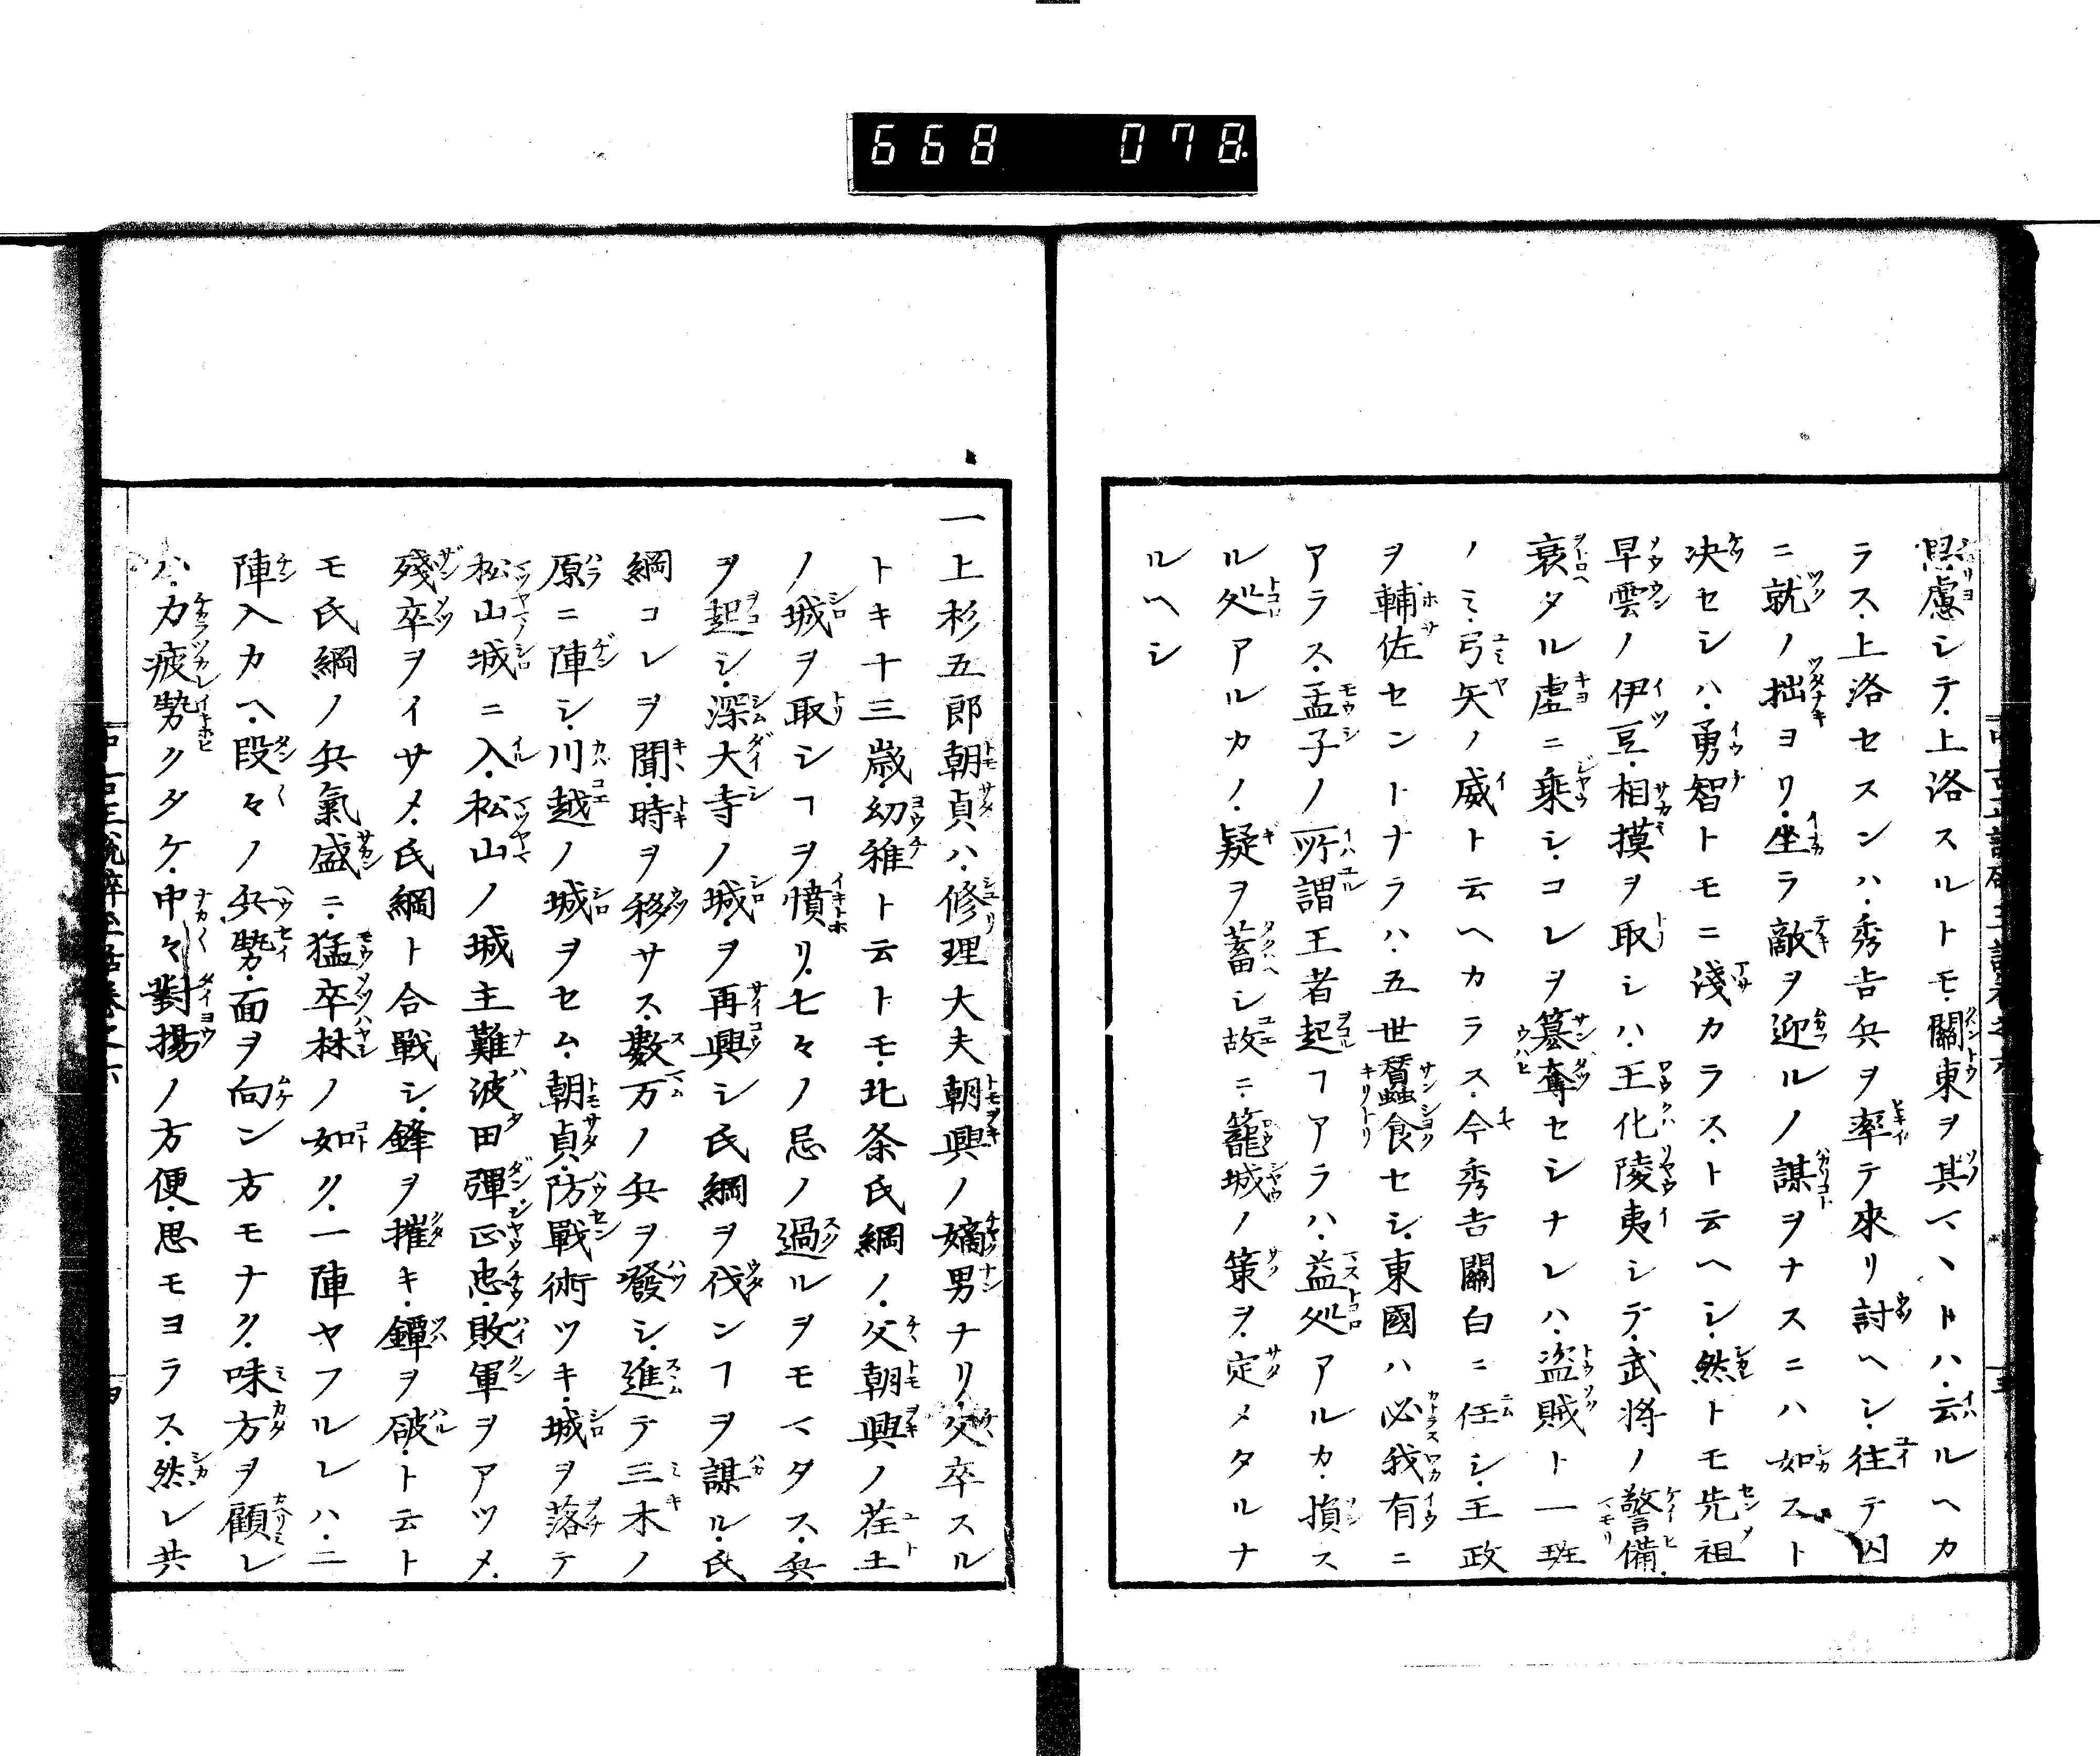 668 078.
慮シテ、上洛スルトモ、關東ヲ其マヽトハ、云ルヘカ
ラス、上洛セスンハ、秀吉兵ヲ率テ來リ討ヘシ、往テ囚
ニ就ノ拙ヨリ、坐ラ敵ヲ迎ルノ謀ヲナスニハ如スト
决セシハ、勇智トモニ淺カラストモ云ヘシ、然トモ先祖
早雲ノ伊豆、相摸ヲ取シハ、王化陵夷シテ、武将ノ警備、
衰タル虚ニ乗シ、コレヲ簒奪セシナレハ、盗賊ト一班
ノミ、弓矢ノ威ト云ヘカラス、今秀吉關白ニ任シ、王政
ヲ輔佐セントナラハ、五世蠶食セシ、東國ハ必我有ニ
アラス、孟子ノ所謂王者起ヿアラハ、益処アルカ、損ス
ル処アルカノ、疑ヲ蓄シ故ニ、籠城ノ策ヲ、定メタルナ
ルヘシ
一上杉五郎朝貞ハ、修理大夫朝興ノ嫡男ナリ、父卒スル
トキ十三歳、幼稚ト云トモ、北条氏綱ノ、父朝興ノ荏土
ノ城ヲ取シヿヲ憤リ、七々ノ忌ノ過ルヲモマタス、兵
ヲ起シ、深大寺ノ城、ヲ再興シ氏綱ヲ伐ンヿヲ謀ル、氏
綱コレヲ聞、時ヲ移サス、數万ノ兵ヲ發シ、進テ三木ノ
原ニ陣シ、川越ノ城ヲセム、朝貞、防戰術ツキ、城ヲ落テ
松山城ニ入、松山ノ城主難波田彈正忠、敗軍ヲアツメ、
殘卒ヲイサメ、氏綱ト合戰シ、鋒ヲ摧キ、鐔ヲ破、ト云ト
モ氏綱ノ兵氣盛ニ、猛卒林ノ如ク、一陣ヤフルレハ、二
陣入カヘ、段々ノ兵勢、面ヲ向ン方モナク、味方ヲ顧レ
ハ、力疲勢クタケ、中々對揚ノ方便、思モヨラス、然レ共